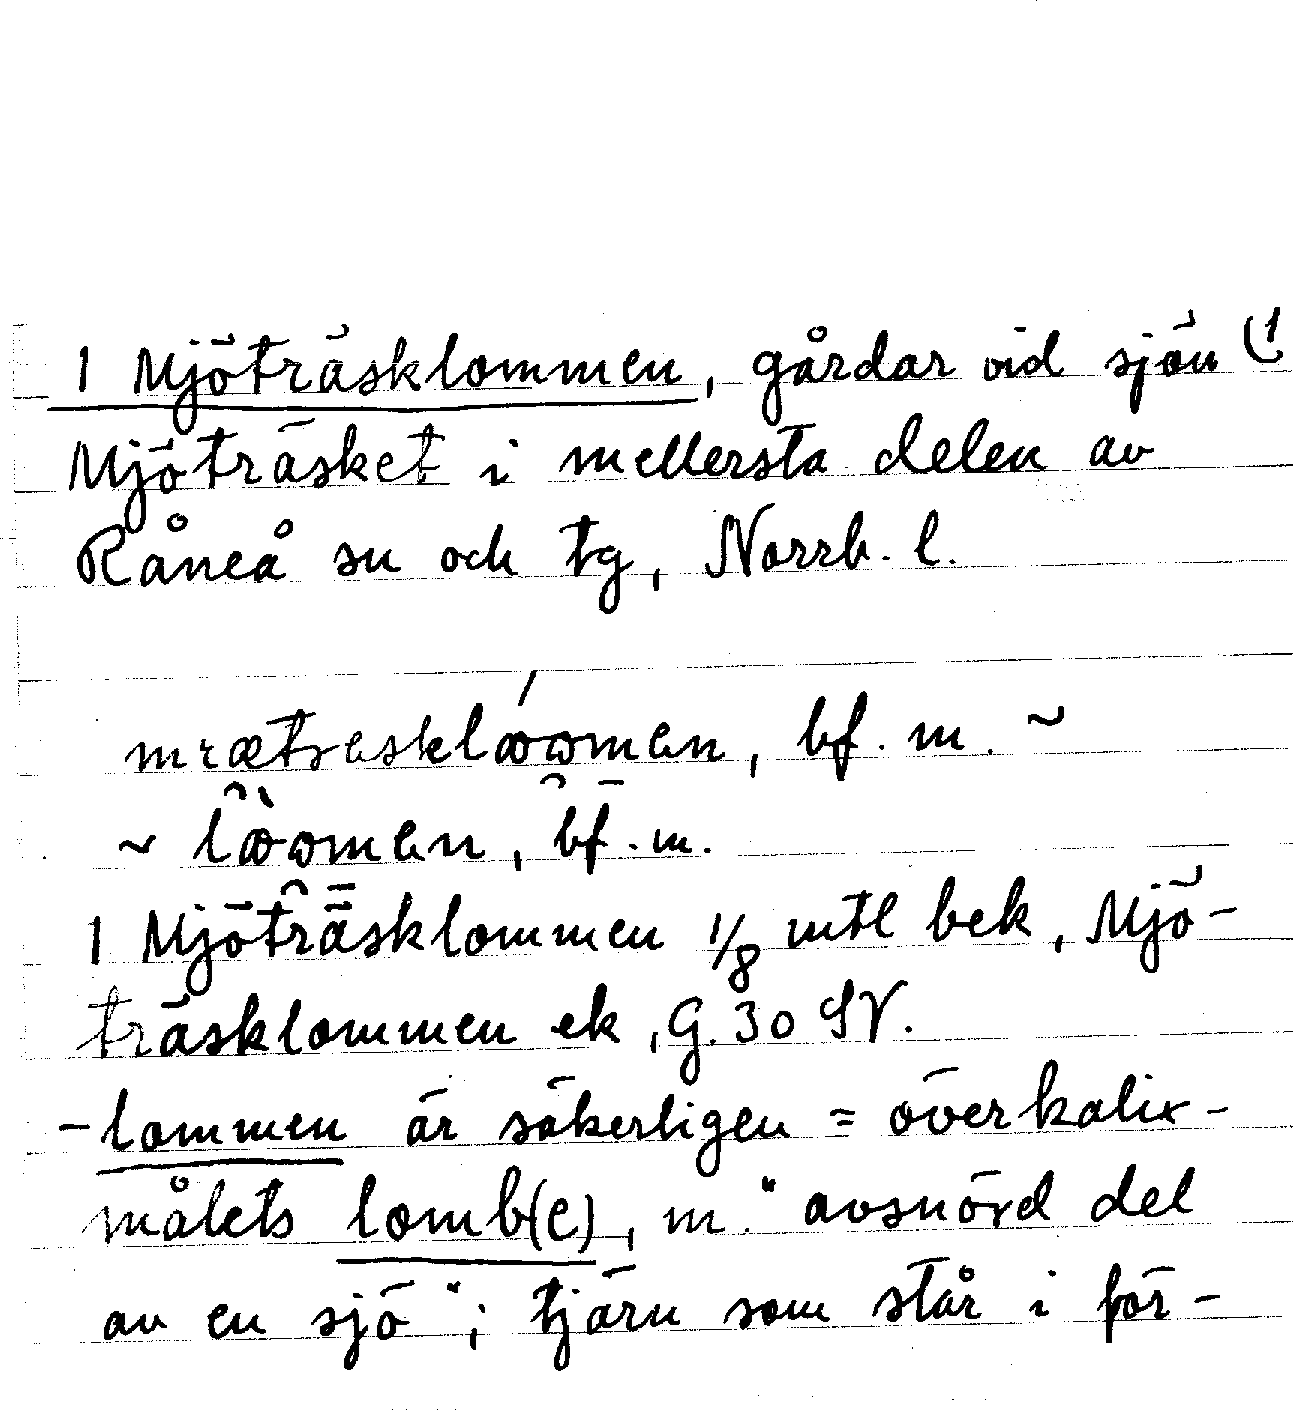 1 Mjöträsklommen, gårdar vid sjön (1
Mjöträsket i mellersta delen av
Råneå sn och tg, Norrb. l.
bf. m. ~
~ bf. m.
1 Mjöträsklommen 1/8 mtl bek, Mjö-
träsklommen ek, G. 30 SV.
-lommen är säkerligen = överkalix-
målets lomb(e), m. "avsnörd del
av en sjö"; tjärn som står i för-